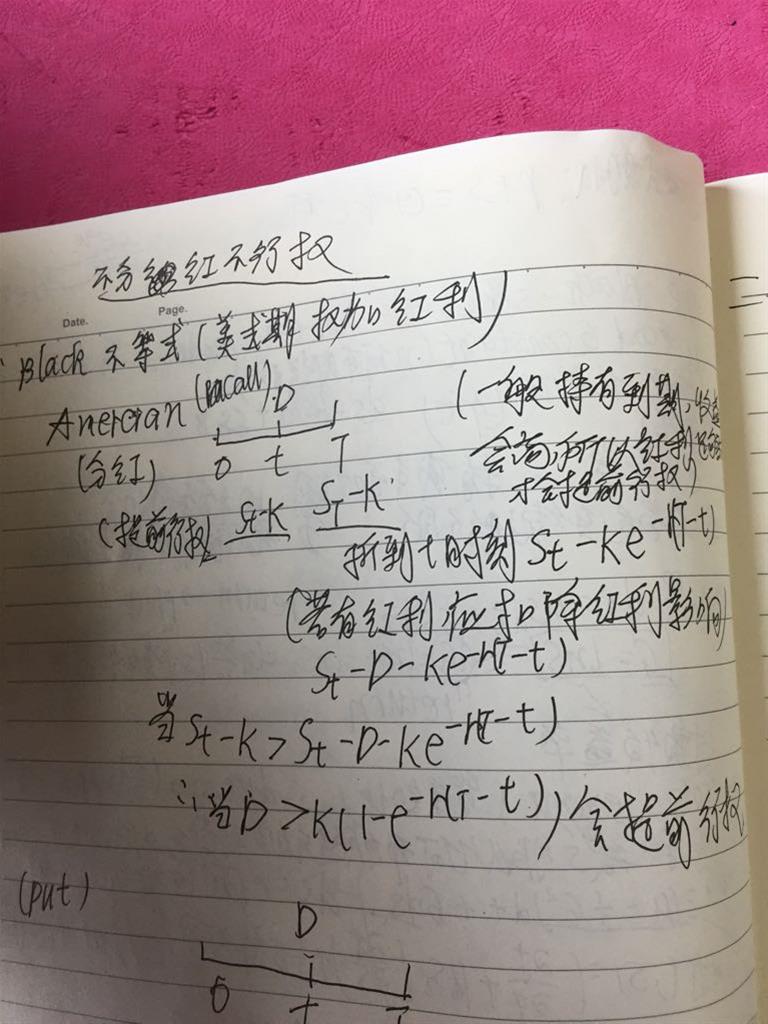 不分红不行权
Date. Page.
Black 不等式(美式期权加红利)
Anercian (call)
D
(分红) 0 t T
(一般持有到期,收益
会高,所以红利
才会提前行权)
(提前行权) St-K ST-K
折到t时刻 St-Ke-r(T-t)
(若有红利应扣除红利影响)
St-D-Ke-r(T-t)
当St-K>St-D-Ke-r(T-t)
∴当D>K(1-e-r(T-t))会提前行权
(put)
D
0 t T